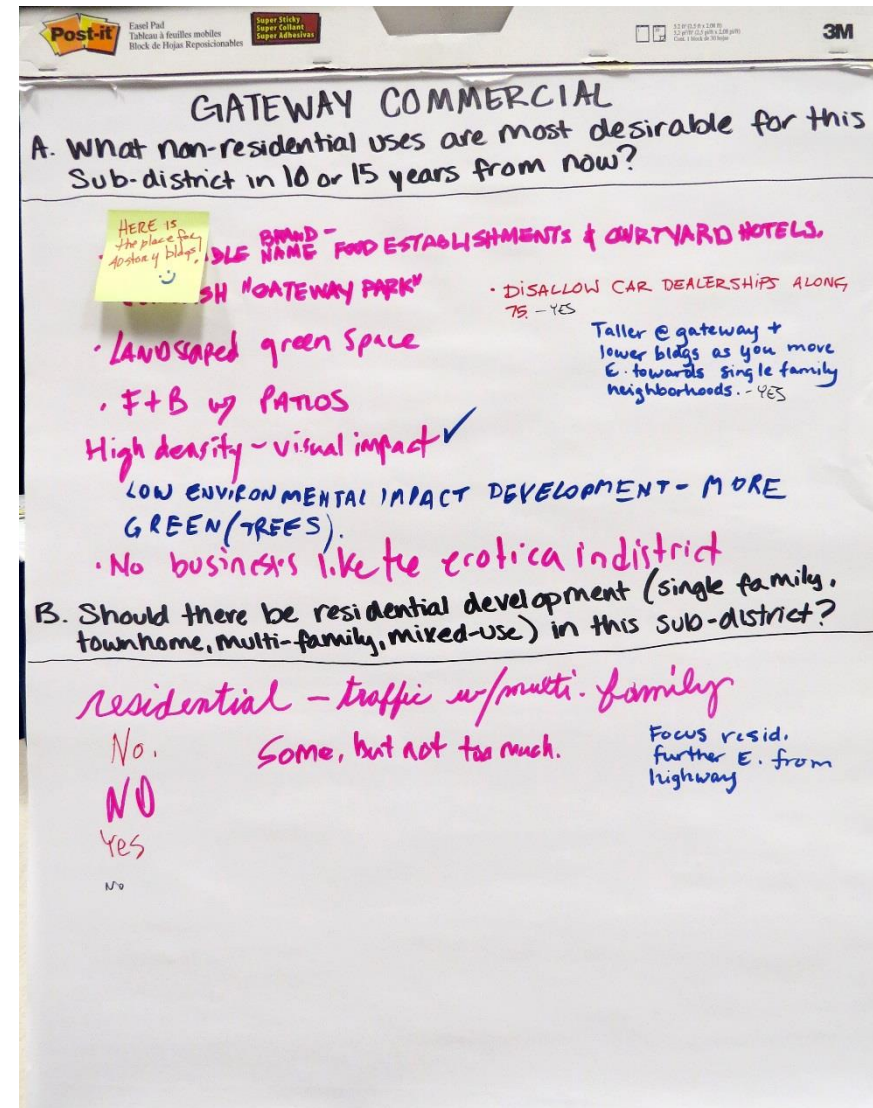 Post-it
Easel Pad
Tableau à feuilles mobiles
Block de Hojas Reposicionables
Super Sticky
Super Collant
Super Adhesivas
3M
GATEWAY COMMERCIAL
A. What non-residential uses are most desirable for this
Sub-district in 10 or 15 years from now?
HERE IS
the place for
40 story bldgs!
BRAND-
NAME FOOD ESTABLISHMENTS & COURTYARD HOTELS.
"GATEWAY PARK"
• DISALLOW CAR DEALERSHIPS ALONG
75. - YES
• LANDSCAPED green space
Taller @ gateway +
lower bldgs as you move
E. towards single family
neighborhoods. - YES
• F+B w/ PATIOS
High density - visual impact ✓
LOW ENVIRONMENTAL IMPACT DEVELOPMENT - MORE
GREEN (TREES).
• No business like the erotica in district
B. Should there be residential development (single family,
townhome, multi-family, mixed-use) in this sub-district?
residential - traffic w/multi-family
No.
Some, but not too much.
Focus resid.
further E. from
highway
NO
Yes
No